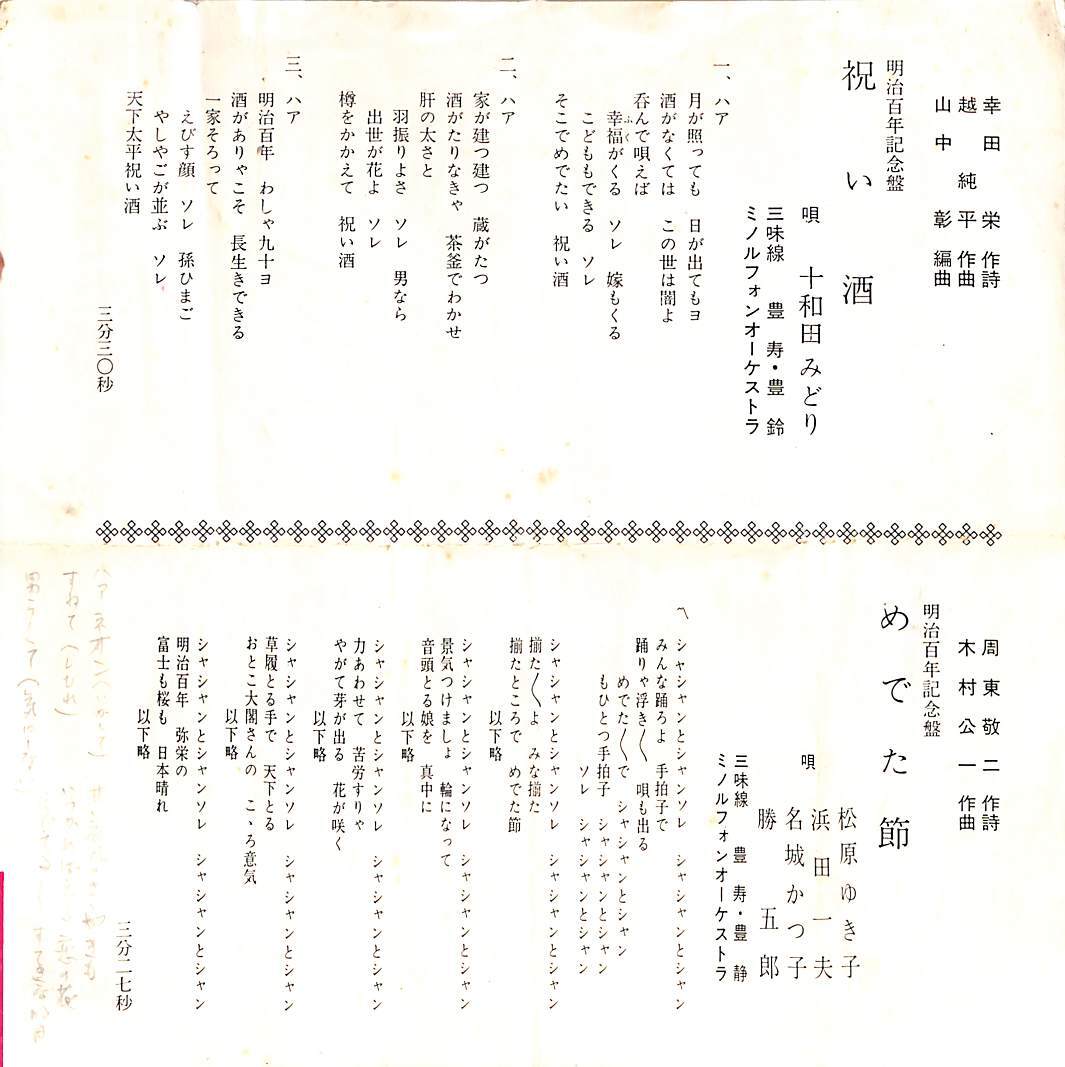 幸田栄作詩
越純平作曲
山中彰編曲
明治百年記念盤
祝い酒
唄 十和田みどり
三味線 豊寿・豊鈴
ミノルフォンオーケストラ
一、ハア
月が照っても 日が出てもヨ
酒がなくては この世は闇よ
呑んで唄えば
幸福がくる ソレ 嫁もくる
ふく
こどももできる ソレ
そこでめでたい 祝い酒
二、ハア
家が建つ建つ 蔵がたつ
酒がたりなきゃ 茶釜でわかせ
肝の太さと
羽振りよさ ソレ 男なら
出世が花よ ソレ
樽をかかえて 祝い酒
三、ハア
明治百年 わしゃ九十ヨ
酒がありゃこそ 長生きできる
一家そろって
えびす顔 ソレ 孫ひまご
やしやごが並ぶ ソレ
天下太平祝い酒
三分三〇秒
周東敬二作詩
木村公一作曲
明治百年記念盤
めでた節
唄
松原ゆき子
浜田一夫
名城かつ子
勝五郎
三味線 豊寿・豊静
ミノルフォンオーケストラ
〽シャシャンとシャンソレ シャシャンとシャン
みんな踊ろよ 手拍子で
踊りゃ浮き〱 唄も出る
めでた〱で シャシャンとシャン
もひとつ手拍子 シャシャンとシャン
ソレ シャシャンとシャン
シャシャンとシャンソレ シャシャンとシャン
揃た〱よ みな揃た
揃たところで めでた節
以下略
シャシャンとシャンソレ シャシャンとシャン
景気つけましょ 輪になって
音頭とる娘を 真中に
以下略
シャシャンとシャンソレ シャシャンとシャン
力あわせて 苦労すりゃ
やがて芽が出る 花が咲く
以下略
シャシャンとシャンソレ シャシャンとシャン
草履とる手で 天下とる
おとこ大閤さんの こゝろ意気
以下略
シャシャンとシャンソレ シャシャンとシャン
明治百年 弥栄の
富士も桜も 日本晴れ
以下略
三分二七秒